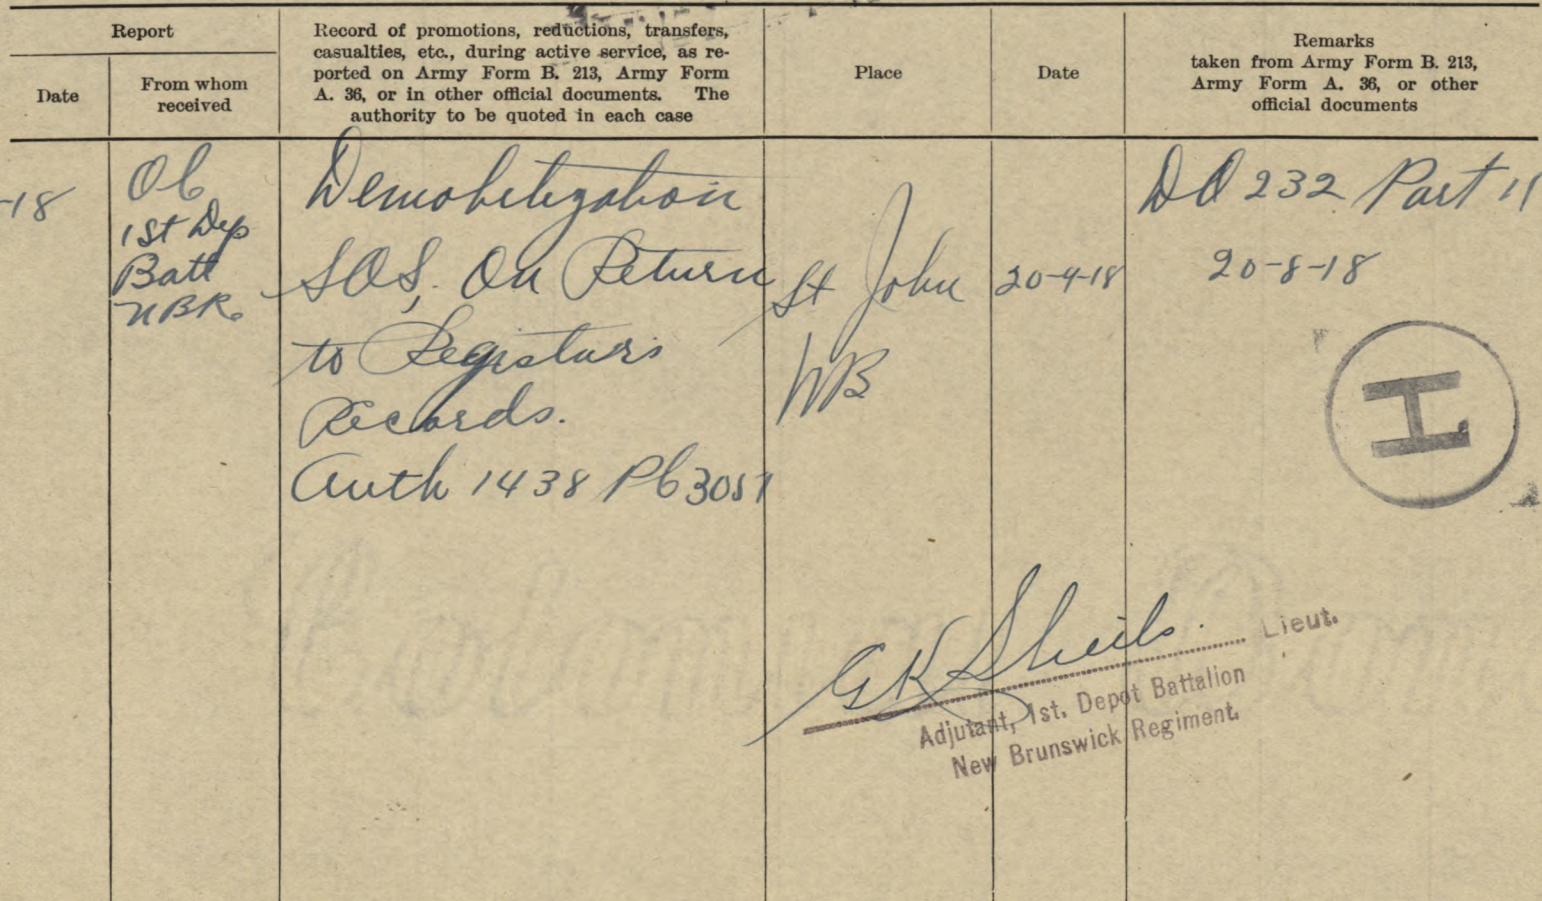 Report
Date
From whom
received
Record of promotions, reductions, transfers,
casualties, etc., during active service, as re-
ported on Army Form B. 213, Army Form
A. 36, or in other official documents. The
authority to be quoted in each case
Place
Date
Remarks
taken from Army Form B. 213,
Army Form A. 36, or other
official documents
-18
OC
1st Dep
Batt
NBR.
Demobilization
SOS, On Return
to Registrars
Records.
Auth 1438 PC 3051
St John
NB
20-4-18
DO 232 Part 11
20-8-18
H
GK Sheils.
Lieut.
Adjutant, 1st. Depot Battalion
New Brunswick Regiment.